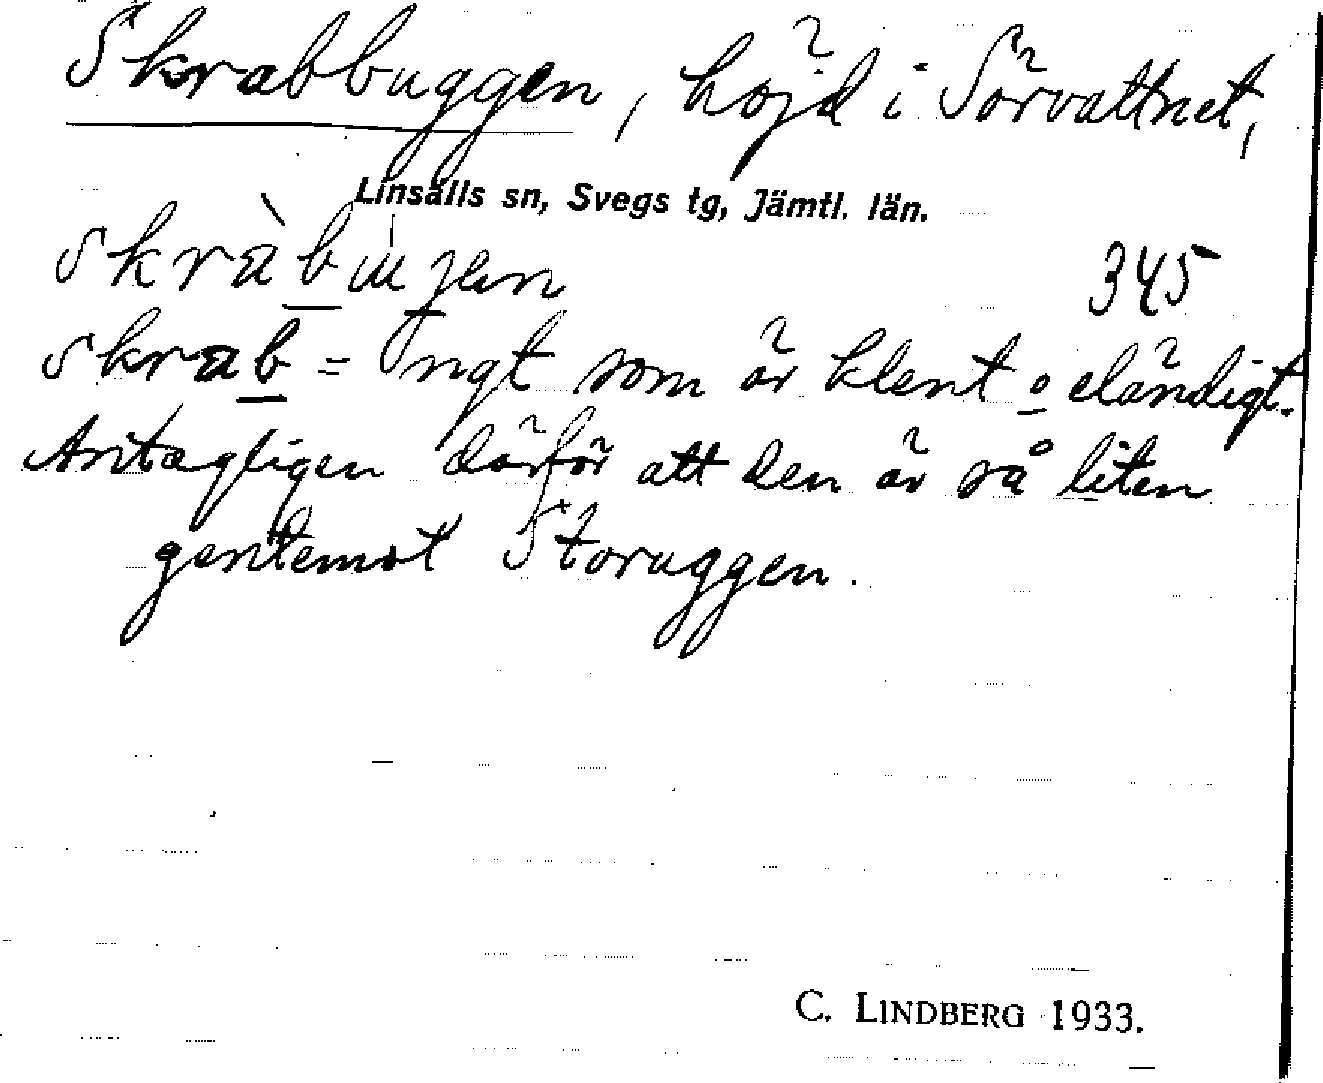 Skrabbuggen, höjd i Sörvattnet,
Linsälls sn, Svegs tg, Jämtl. län.
345
skrab = ngt som är klent o eländigt.
Antagligen därför att den är så liten
gentemot Storuggen.
C. LINDBERG 1933.